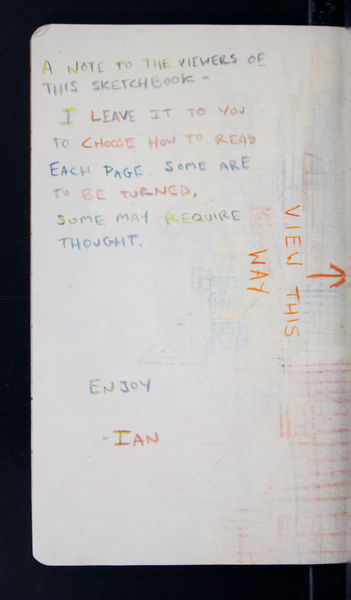 A NOTE TO THE VIEWERS OF
THIS SKETCHBOOK -
I LEAVE IT TO YOU
TO CHOOSE HOW TO READ
EACH PAGE. SOME ARE
TO BE TURNED,
SOME MAY REQUIRE
THOUGHT.
ENJOY
- IAN
VIEW THIS
WAY